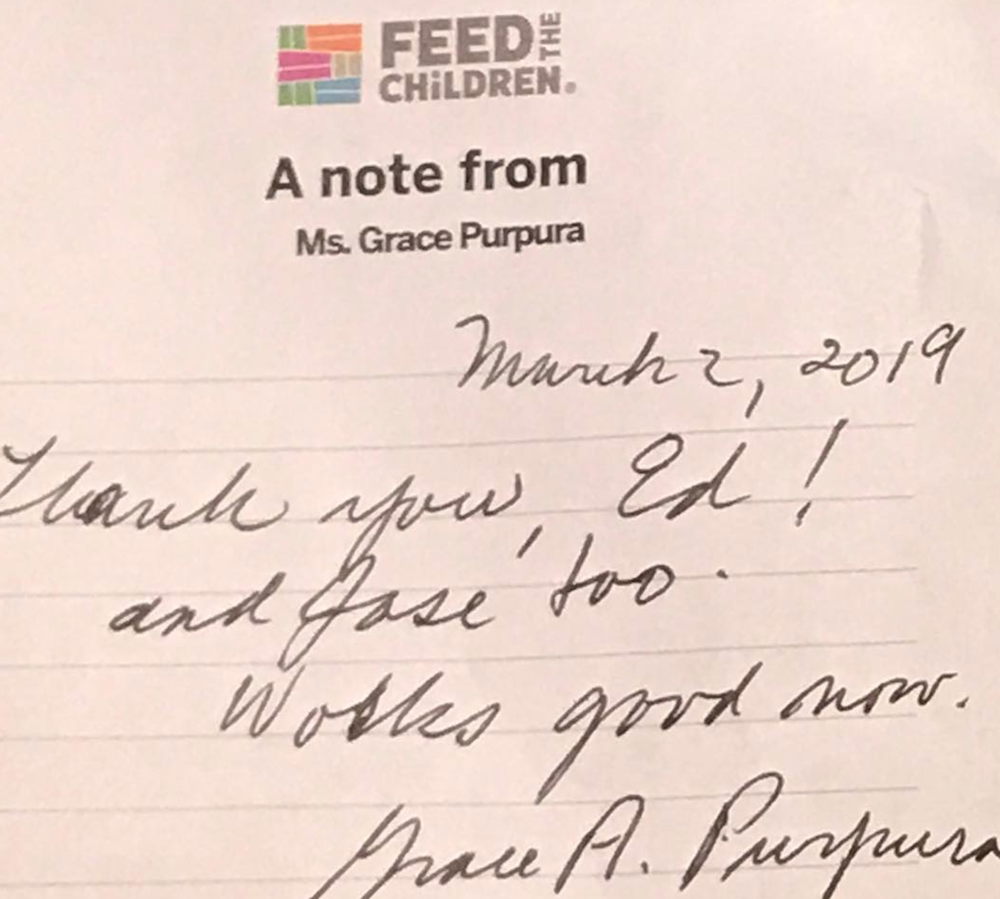 FEED THE
CHiLDREN®
A note from
Ms. Grace Purpura
March 2, 2019
Thank you, Ed!
and José too.
Works good now.
Grace A. Purpura